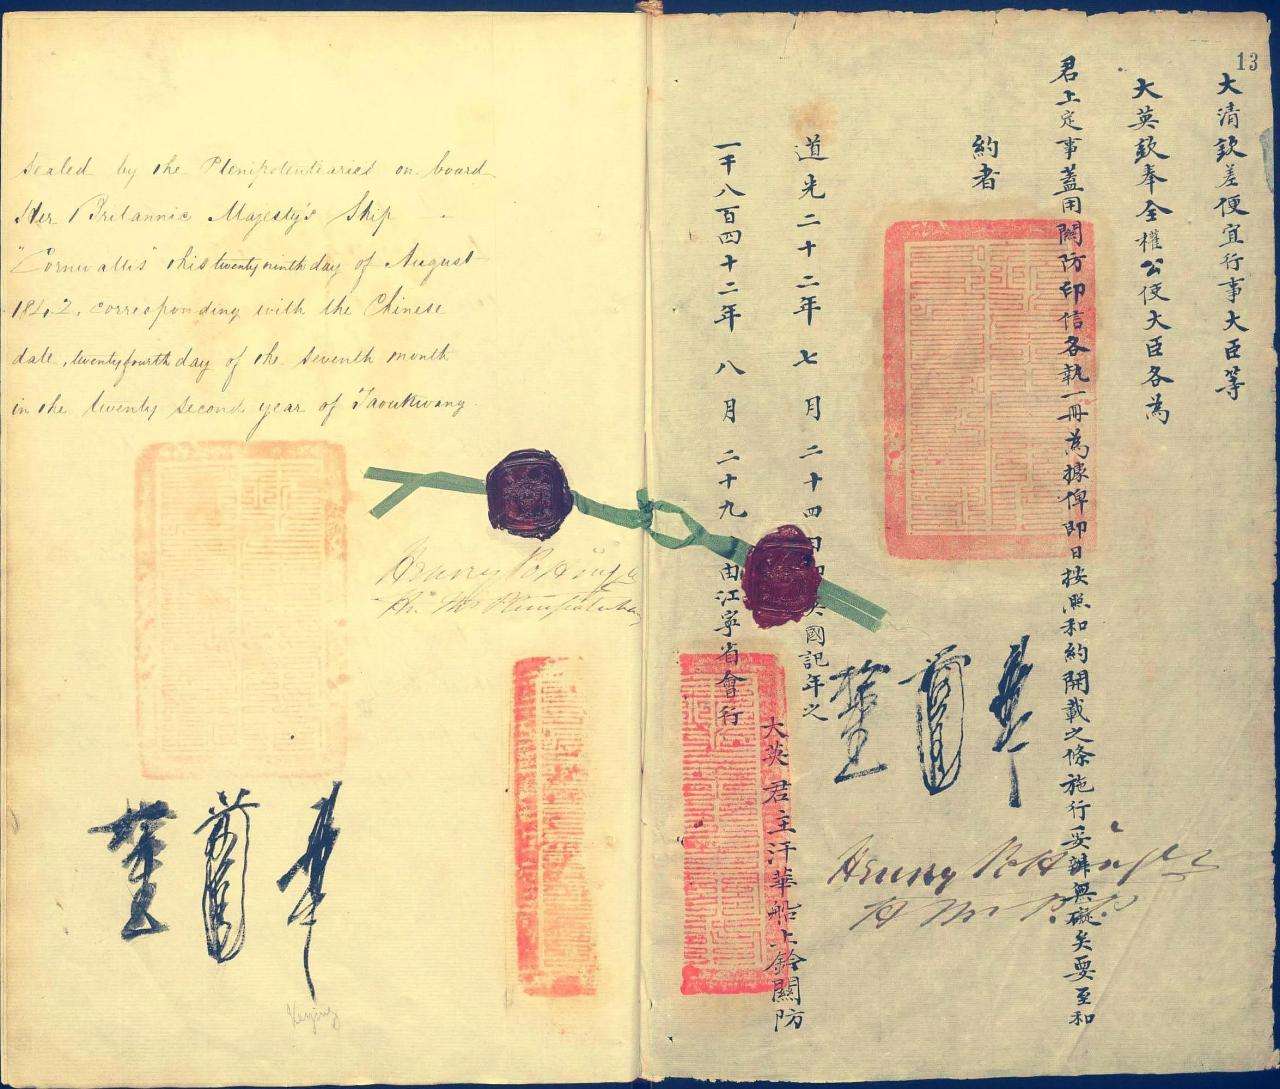 Sealed by the Plenipotentiaries on board
Her Britannic Majesty's Ship
"Cornwallis" this twenty ninth day of August
1842, corresponding with the Chinese
date, twenty fourth day of the seventh month
in the twenty second year of Taoukwang
Henry Pottinger
Keying
13
大清欽差便宜行事大臣等
大英欽奉全權公使大臣各為
君上定事蓋用關防印信各執一冊為據俾即日按照和約開載之條施行妥辦無礙矣要至和
約者
道光二十二年七月二十四日即英國記年之
一千八百四十二年八月二十九日由江寧省會行
大英君主汗華船上鈐關防
Henry Pottinger